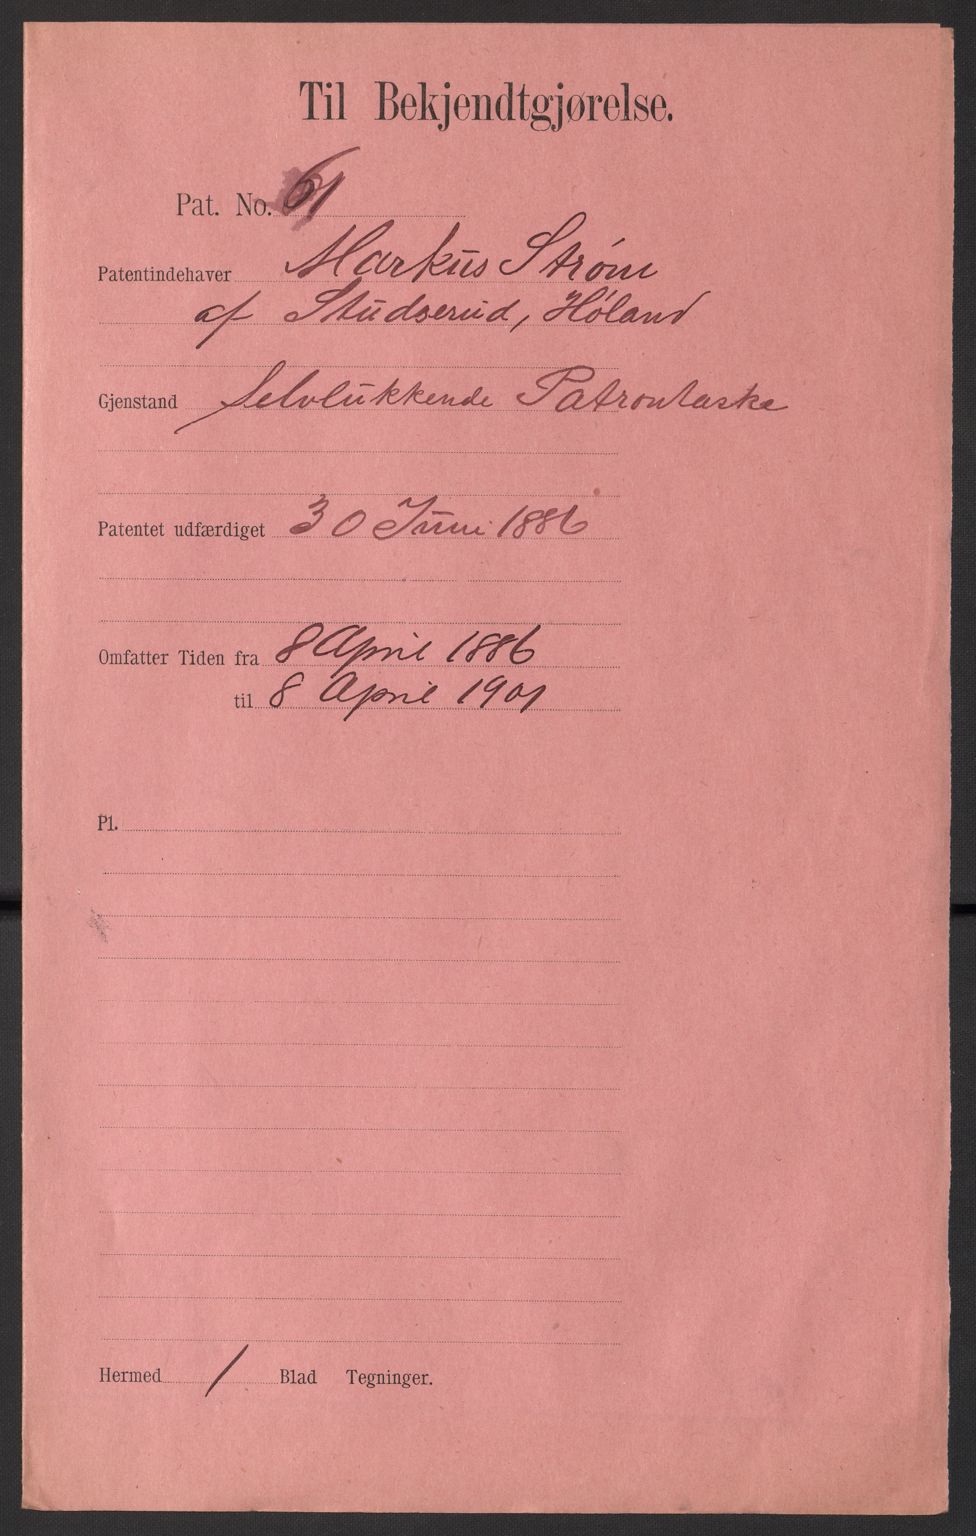 Til Bekjendtgjørelse.
Pat. No. 61
Patentindehaver Markus Strøm
af Studserud, Høland
Gjenstand Selvlukkende Patrontaske
Patentet udfærdiget 30 Juni 1886
Omfatter Tiden fra 8 April 1886
til 8 April 1901
Pl.
Hermed 1 Blad Tegninger.